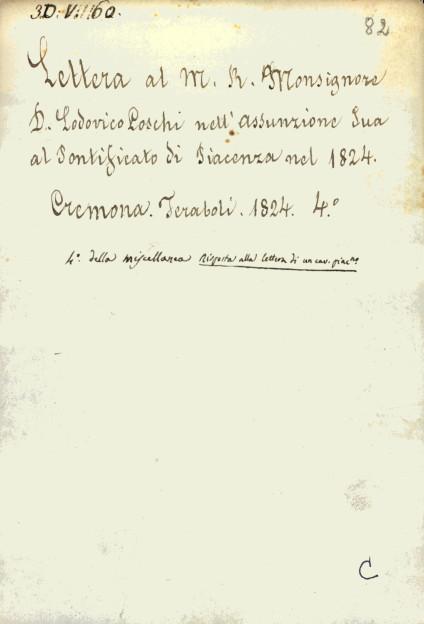 3.D.V.
82
Lettera al M. R. Monsignore
D. Lodovico Loschi nell'assunzione Sua
al Pontificato di Piacenza nel 1824.
Cremona. Feraboli. 1824. 4.º
4º della miscellanea Risposta alla lettera di un cav. piac.no
C